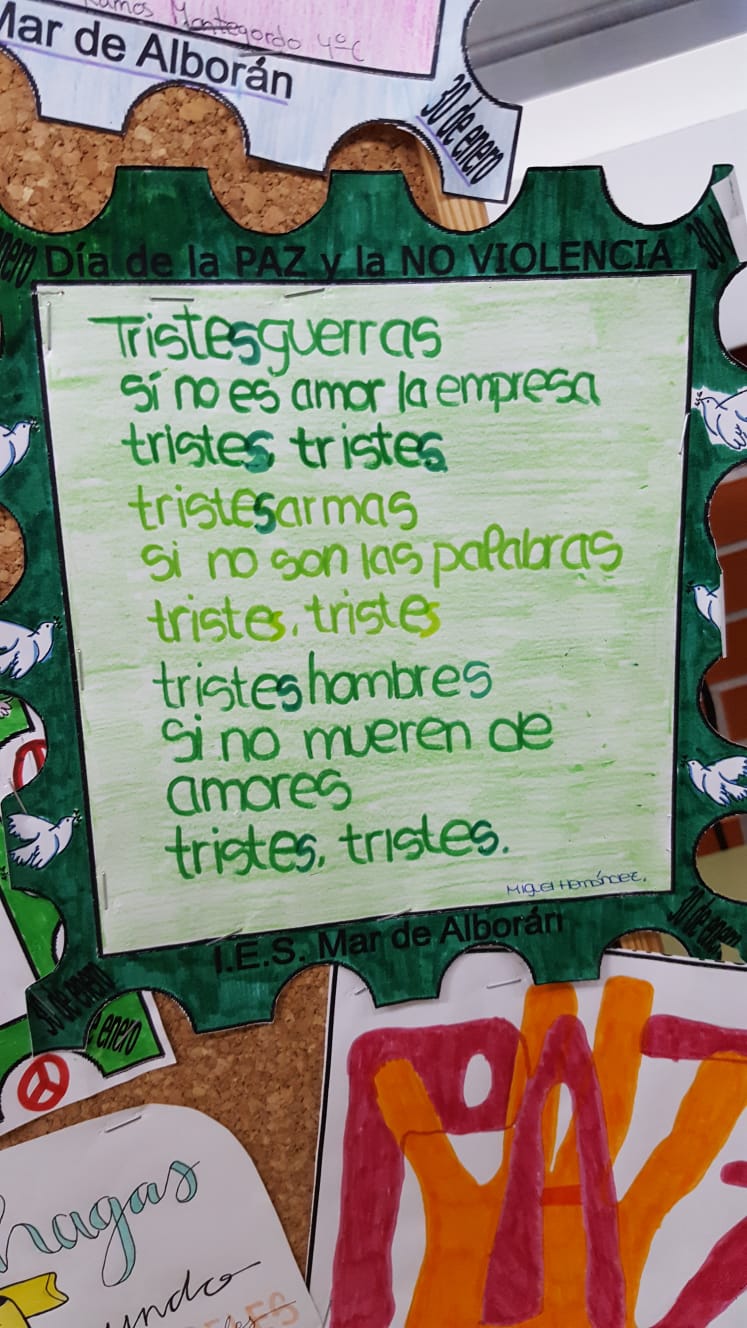 Ramos Montegordo 4ºC
Mar de Alborán
30 de enero
enero
Día de la PAZ y la NO VIOLENCIA
30
Tristes guerras
sí no es amor la empresa
tristes, tristes
tristes armas
si no son las palabras
tristes, tristes
tristes hombres
Si no mueren de
amores
tristes, tristes.
Miguel Hernández.
I.E.S. Mar de Alborán
30 de enero
30 de enero
de enero
PAZ
hagas